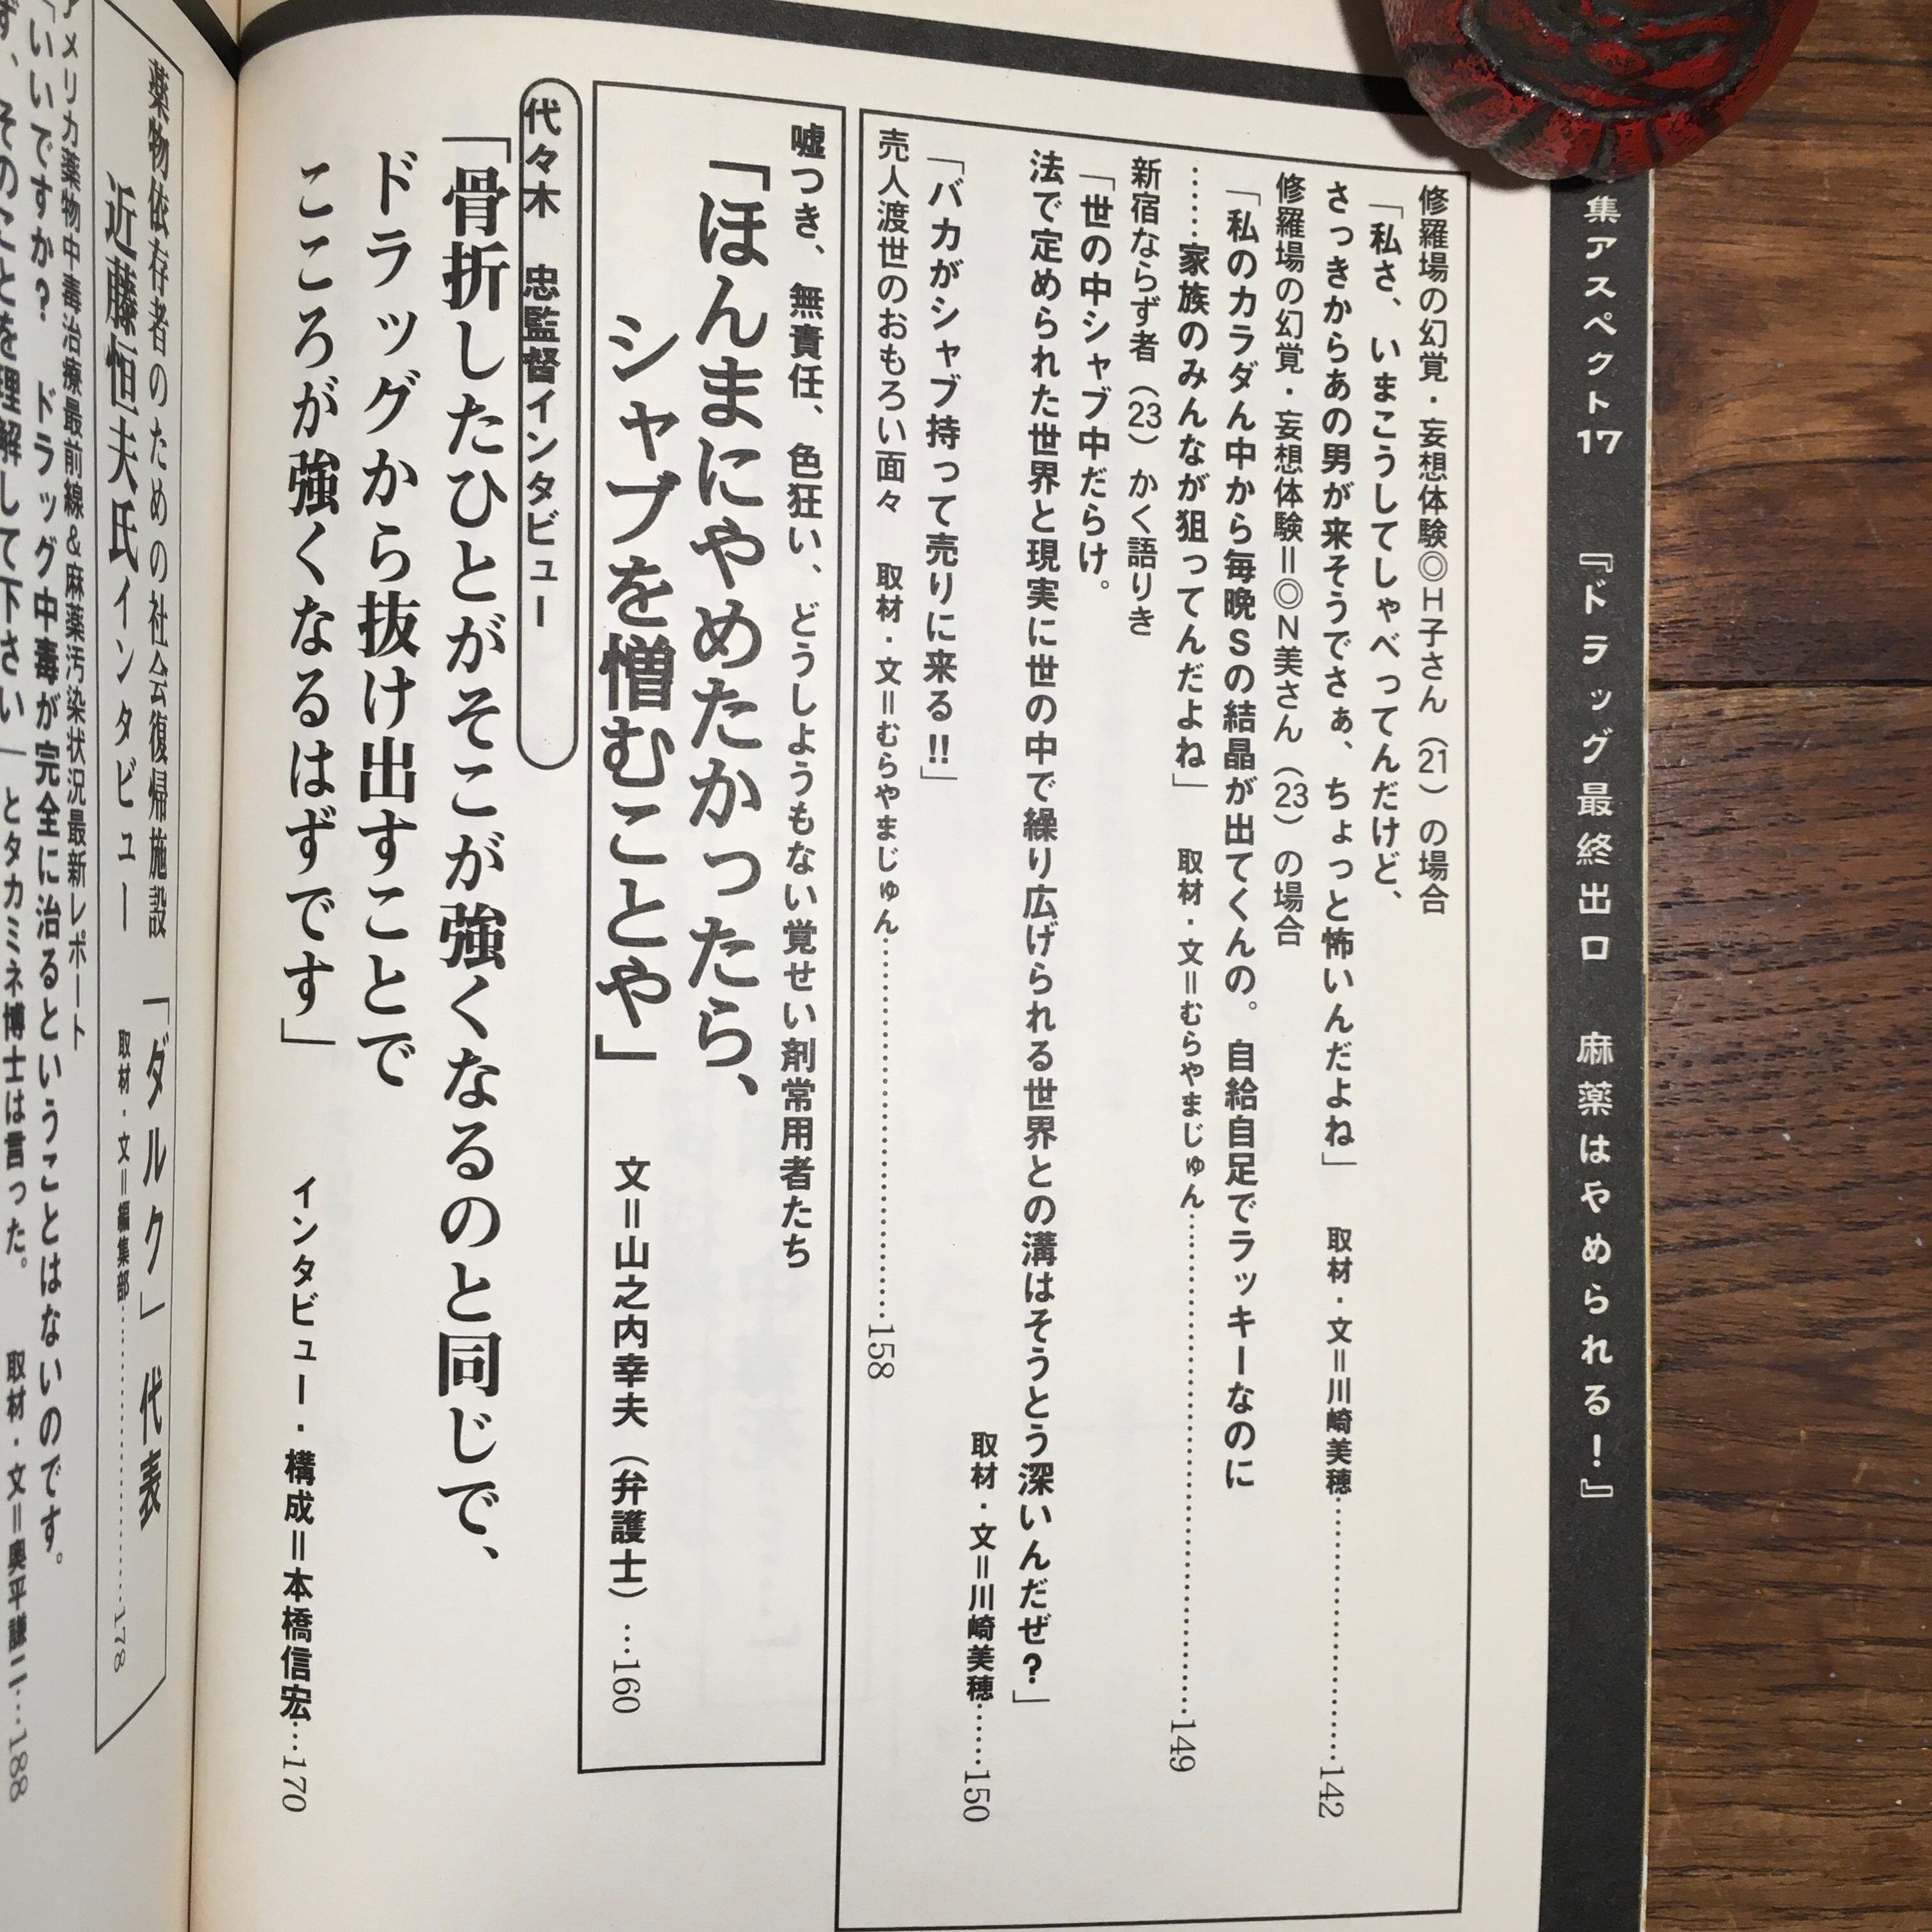 集アスペクト17 『ドラッグ最終出口 麻薬はやめられる!』
修羅場の幻覚・妄想体験◎H子さん(21)の場合
「私さ、いまこうしてしゃべってんだけど、
さっきからあの男が来そうでさぁ、ちょっと怖いんだよね」 取材・文=川崎美穂……………142
修羅場の幻覚・妄想体験=◎N美さん(23)の場合
「私のカラダん中から毎晩Sの結晶が出てくんの。自給自足でラッキーなのに
……家族のみんなが狙ってんだよね」 取材・文=むらやまじゅん……………149
新宿ならず者(23)かく語りき
「世の中シャブ中だらけ。
法で定められた世界と現実に世の中で繰り広げられる世界との溝はそうとう深いんだぜ?」
取材・文=川崎美穂……150
「バカがシャブ持って売りに来る!!」
売人渡世のおもろい面々 取材・文=むらやまじゅん……………158
嘘つき、無責任、色狂い、どうしようもない覚せい剤常用者たち
「ほんまにやめたかったら、
シャブを憎むことや」 文=山之内幸夫(弁護士)…160
代々木 忠監督インタビュー
「骨折したひとがそこが強くなるのと同じで、
ドラッグから抜け出すことで
こころが強くなるはずです」 インタビュー・構成=本橋信宏…170
薬物依存者のための社会復帰施設 「ダルク」代表
近藤恒夫氏インタビュー 取材・文=編集部……………178
アメリカ薬物中毒治療最前線&麻薬汚染状況最新レポート
「いいですか? ドラッグ中毒が完全に治るということはないのです。
ず、そのことを理解して下さい」とタカミネ博士は言った。 取材・文=奥平謙二…188